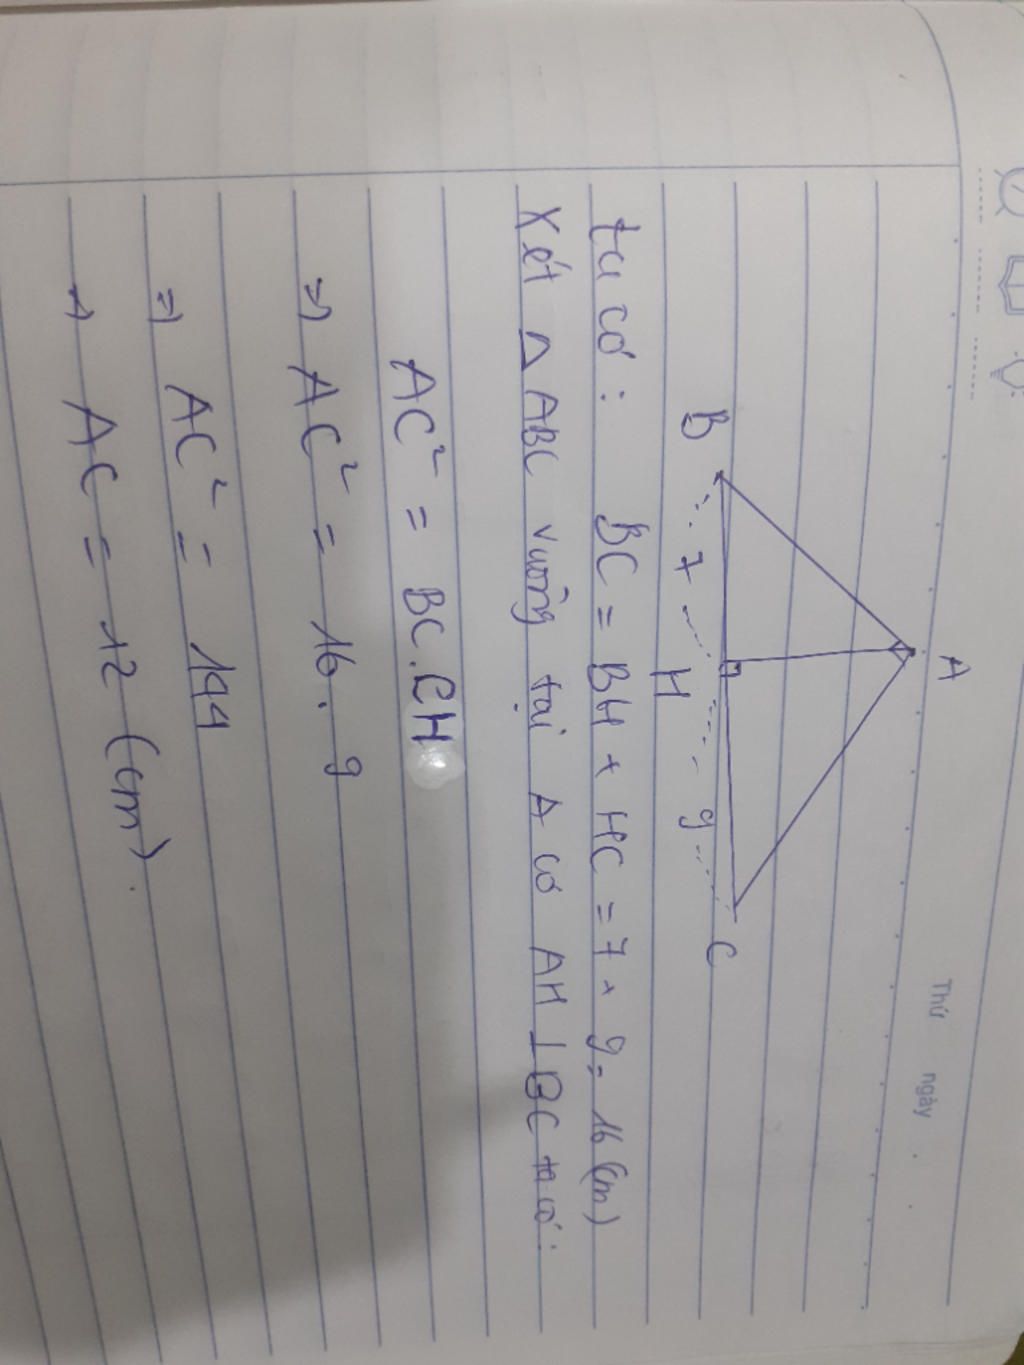 Thứ
ngày
A
B
7
H
9
C
ta có: BC = BH + HC = 7 + 9 = 16 (cm)
Xét △ ABC vuông tại A có AH ⊥ BC ta có:
AC² = BC.CH
=> AC² = 16.9
=> AC² = 144
=> AC = 12 (cm).